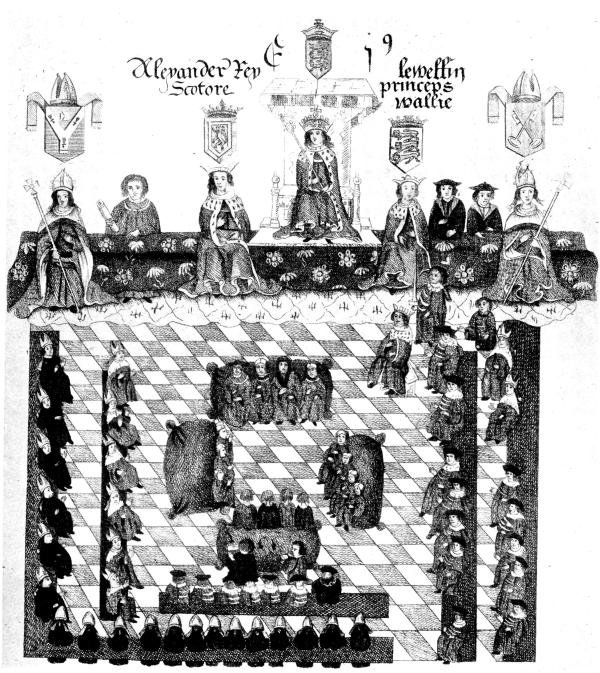 E
Alexander Rex
Scotore
lewellin
princeps
wallie